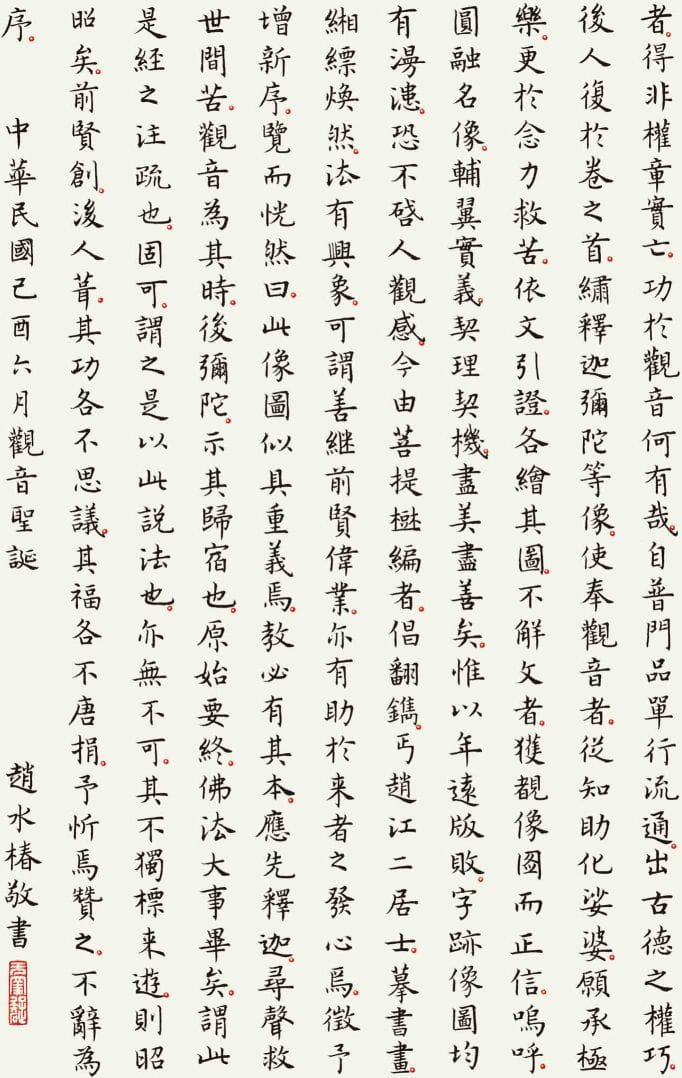 者。得非權章實亡。功於觀音何有哉。自普門品單行流通。出古德之權巧。
後人復於卷之首。繡釋迦彌陀等像。使奉觀音者。從知助化娑婆。願承極
樂。更於念力救苦。依文引證。各繪其圖。不解文者。獲覩像圖而正信。嗚呼。
圓融名像。輔翼實義。契理契機。盡美盡善矣。惟以年遠版敗。字跡像圖均
有漫漶。恐不啓人觀感。今由菩提樹編者。倡翻鐫。丐趙江二居士。摹書畫。
緗縹煥然。法有興象。可謂善繼前賢偉業。亦有助於来者之發心焉。徵予
增新序。覽而恍然曰。此像圖似具重義焉。教必有其本。應先釋迦。尋聲救
世間苦。觀音為其時。後彌陀。示其歸宿也。原始要終。佛法大事畢矣。謂此
是經之注疏也。固可。謂之是以此說法也。亦無不可。其不獨標来遊。則昭
昭矣。前賢創。後人葺。其功各不思議。其福各不唐捐。予忻焉贊之。不辭為
序。 中華民國己酉六月觀音聖誕 趙水椿敬書